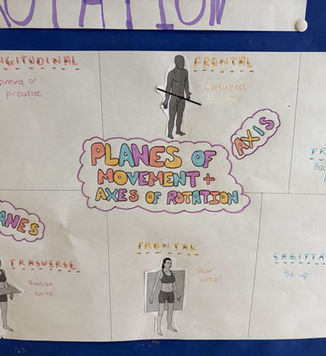 ROTATION
NGITUDINAL
pinning or
pirouette
FRONTAL
Cartwheel
AXIS
TR
Bac
PLANES OF
MOVEMENT +
AXES OF ROTATION
ANES
TRASVERSE
Russian
twist
FRONTAL
Star
jump
SAGITTA
Sit up